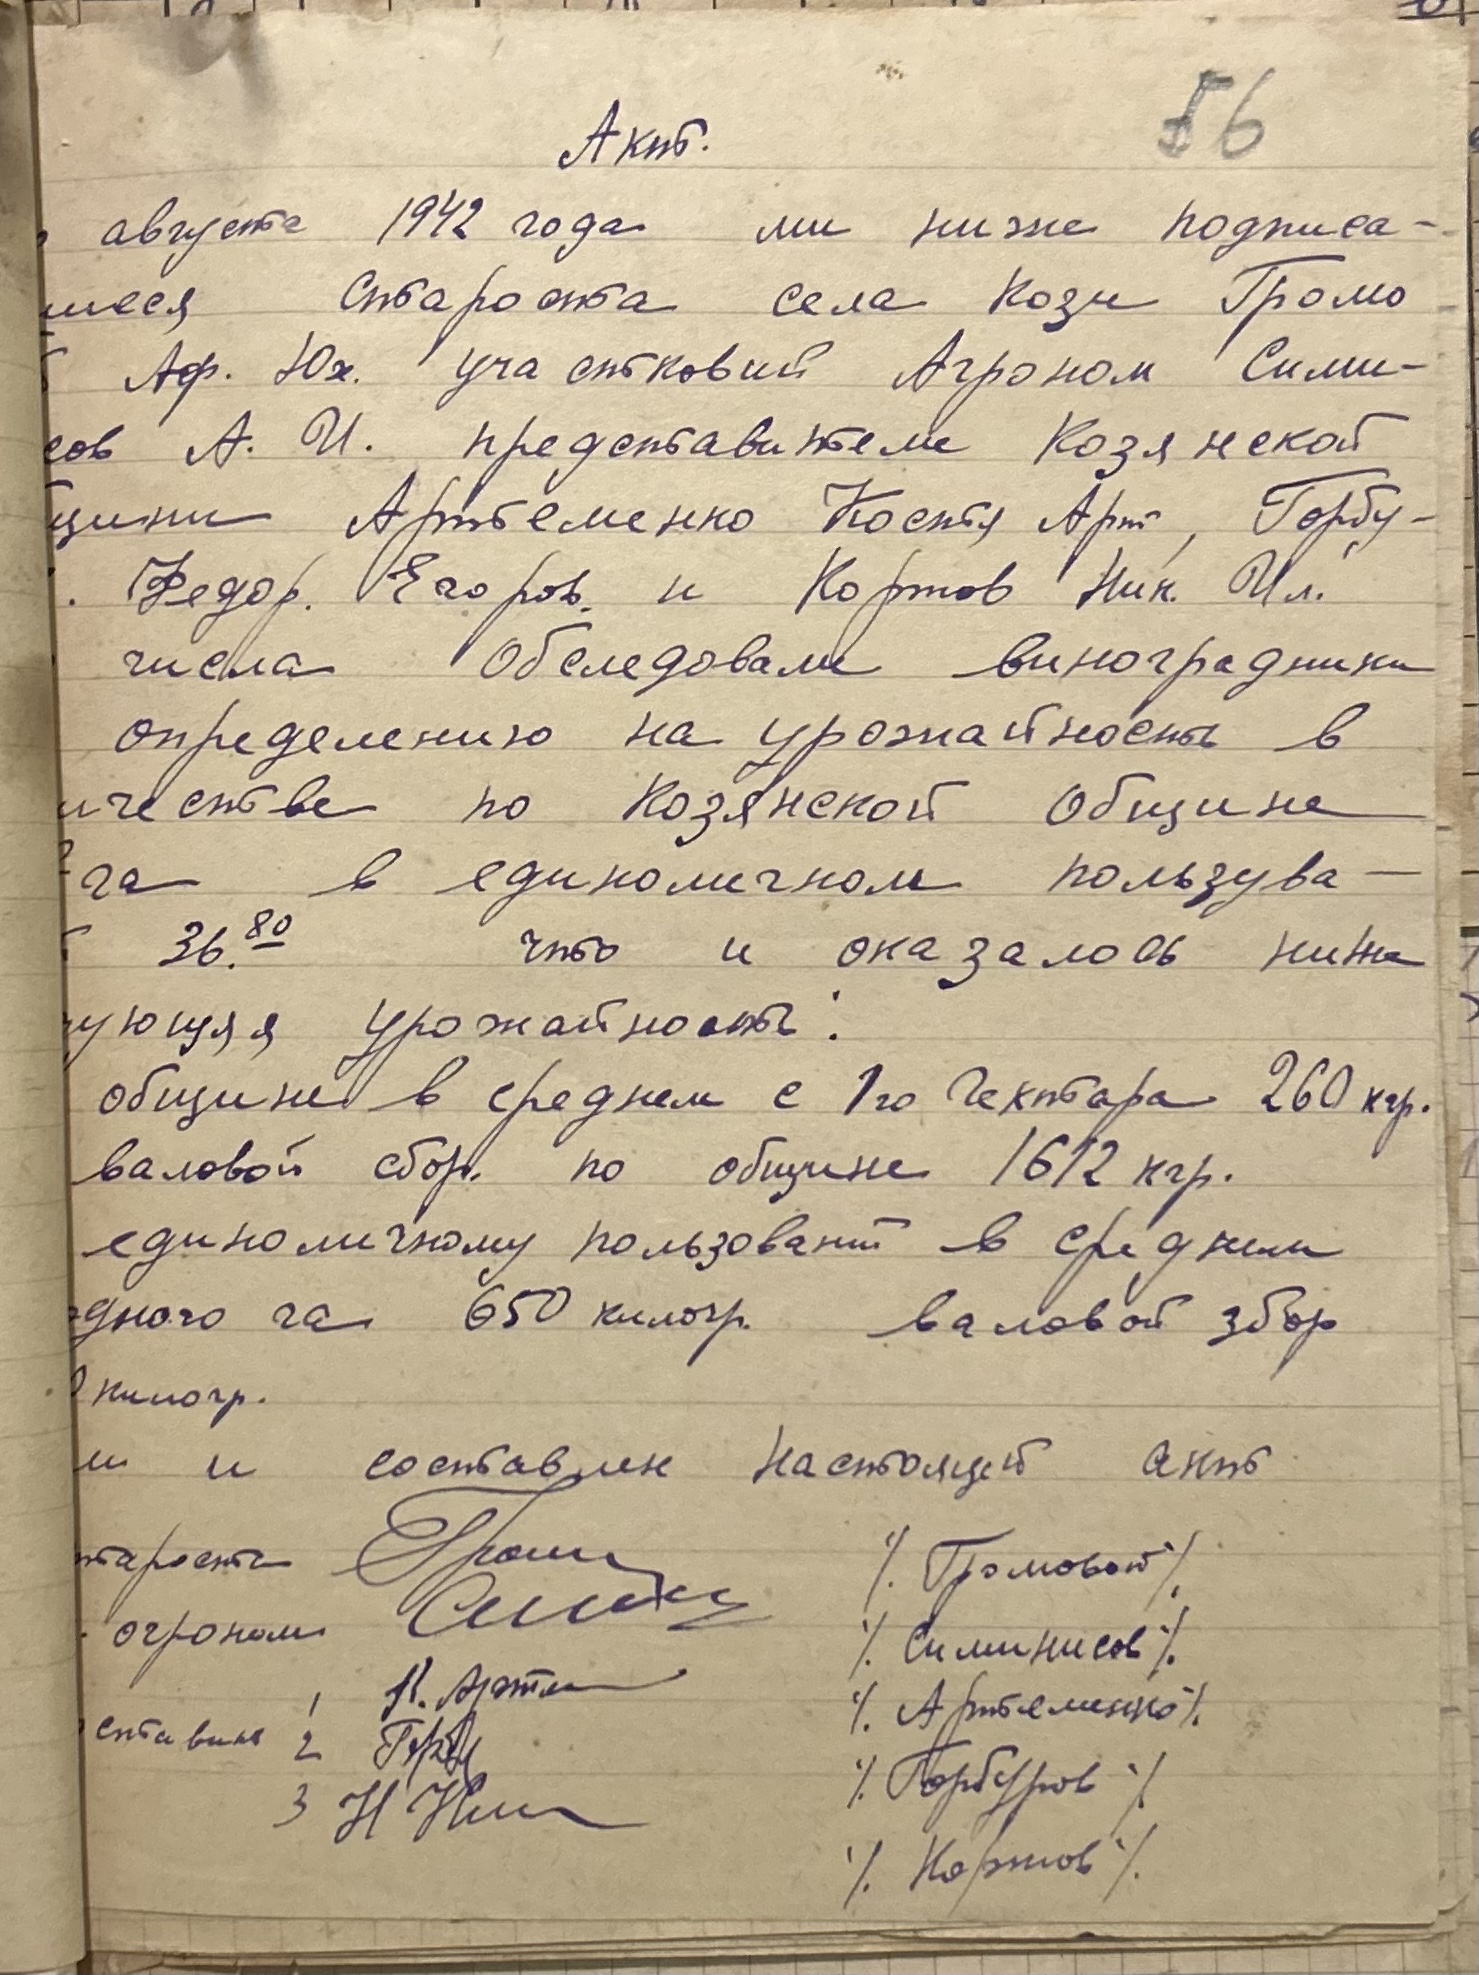 56
Акт.
августа 1942 года ми ниже подписа-
шиеся староста села Кози Громо
Аф. Юх. участковий Агроном Сими-
сов А. И. представители Козянской
щини Артеменко Костя Арт, Горбу-
. Федор. Егоров. и Кортов Ник. Ил.
числа обследовали виноградники
определению на урожайность в
ичестве по Козянской общине
га в единоличном пользува-
36.80 что и оказалось ниже
ующяя урожайность:
общине в среднем с 1го гектара 260 кгр.
валовой сбор. по общине 1612 кгр.
единоличному пользований в среднем
одного га 650 килогр. валовой збор
0 килогр.
м и составлен настоящей акт
тароста Гром ". Громовой".
огроном Сими ". Симинисов".
1 К. Артем ". Артеменко".
ставили 2 Горбу ". Горбуров".
3 ". Кортов".